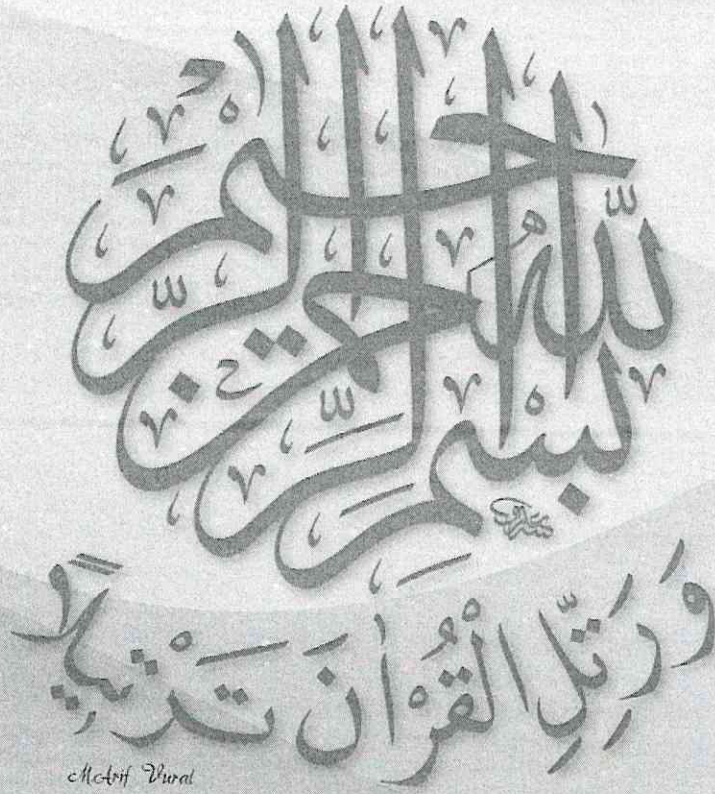 بسم الله الرحمن الرحيم
وَرَتِّلِ الْقُرْاٰنَ تَرْت۪يلًا
M.Arif Vural